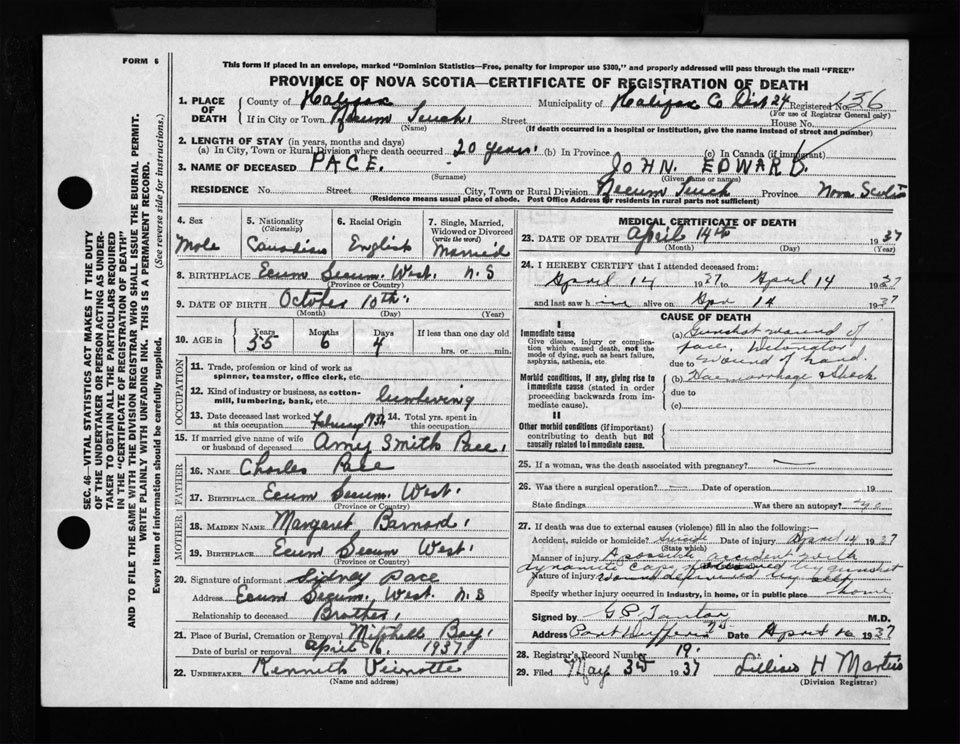 FORM 6
This form if placed in an envelope, marked "Dominion Statistics—Free, penalty for improper use $300," and properly addressed will pass through the mail "FREE"
PROVINCE OF NOVA SCOTIA—CERTIFICATE OF REGISTRATION OF DEATH
1. PLACE OF DEATH County of Halifax Municipality of Halifax Co Dist 24 Registered No. 136
(For use of Registrar General only)
If in City or Town Necum Teuch. Street House No.
(Name) (If death occurred in a hospital or institution, give the name instead of street and number)
2. LENGTH OF STAY (in years, months and days)
(a) In City, Town or Rural Division where death occurred 20 years. (b) In Province (c) In Canada (if immigrant)
3. NAME OF DECEASED PACE. JOHN. EDWARD.
(Surname) (Given name or names)
RESIDENCE No. Street City, Town or Rural Division Necum Teuch Province Nova Scotia
(Residence means usual place of abode. Post Office Address for residents in rural parts not sufficient)
SEC. 46—VITAL STATISTICS ACT MAKES IT THE DUTY
OF THE UNDERTAKER OR PERSON ACTING AS UNDER-
TAKER TO OBTAIN ALL THE PARTICULARS REQUIRED
IN THE "CERTIFICATE OF REGISTRATION OF DEATH"
AND TO FILE THE SAME WITH THE DIVISION REGISTRAR WHO SHALL ISSUE THE BURIAL PERMIT.
WRITE PLAINLY WITH UNFADING INK. THIS IS A PERMANENT RECORD.
Every item of information should be carefully supplied. (See reverse side for instructions.)
4. Sex 5. Nationality (Citizenship) 6. Racial Origin 7. Single, Married, Widowed or Divorced (write the word)
Male Canadian English Married
8. BIRTHPLACE Ecum Secum. West. N.S
(Province or County)
9. DATE OF BIRTH October 10th.
(Month) (Day) (Year)
10. AGE in Years Months Days If less than one day old
55 6 4 hrs. or min.
OCCUPATION
11. Trade, profession or kind of work as spinner, teamster, office clerk, etc.
12. Kind of industry or business, as cotton-mill, lumbering, bank, etc. Lumbering
13. Date deceased last worked at this occupation February 1937 14. Total yrs. spent in this occupation
15. If married give name of wife or husband of deceased Amy Smith Pace.
FATHER
16. NAME Charles Pace
17. BIRTHPLACE Ecum Secum. West.
(Province or Country)
MOTHER
18. MAIDEN NAME Margaret Barnard.
19. BIRTHPLACE Ecum Secum West.
(Province or Country)
20. Signature of informant Sidney Pace
Address Ecum Secum. West. N.S
Relationship to deceased Brother.
21. Place of Burial, Cremation or Removal Mitchell Bay.
Date of burial or removal April 16. 1937.
22. UNDERTAKER Kenneth
(Name and address)
MEDICAL CERTIFICATE OF DEATH
23. DATE OF DEATH April 14th 1937
(Month) (Day) (Year)
24. I HEREBY CERTIFY that I attended deceased from:
April 14 1937 to April 14 1937
and last saw him alive on Apr 14 1937
CAUSE OF DEATH
I
Immediate cause
Give disease, injury or complication which caused death, not the mode of dying, such as heart failure, asphyxia, asthenia, etc.
(a) Gunshot wound of
face.
due to wound of hand.
Morbid conditions, if any, giving rise to immediate cause (stated in order proceeding backwards from immediate cause).
(b) Haemorrhage & Shock
due to
(c)
II
Other morbid conditions (if important) contributing to death but not causally related to immediate cause.
25. If a woman, was the death associated with pregnancy? —
26. Was there a surgical operation? — Date of operation 19
State findings Was there an autopsy? no
27. If death was due to external causes (violence) fill in also the following:—
Accident, suicide or homicide? Suicide Date of injury April 14 1937
(State which)
Manner of injury A possible accident with
dynamite caps followed by gunshot
Nature of injury wound by self
Specify whether injury occurred in industry, in home, or in public place home
Signed by M.D.
Address Port Dufferin NS Date April 16 1937
28. Registrar's Record Number 19.
29. Filed May 3rd 1937 H
(Division Registrar)